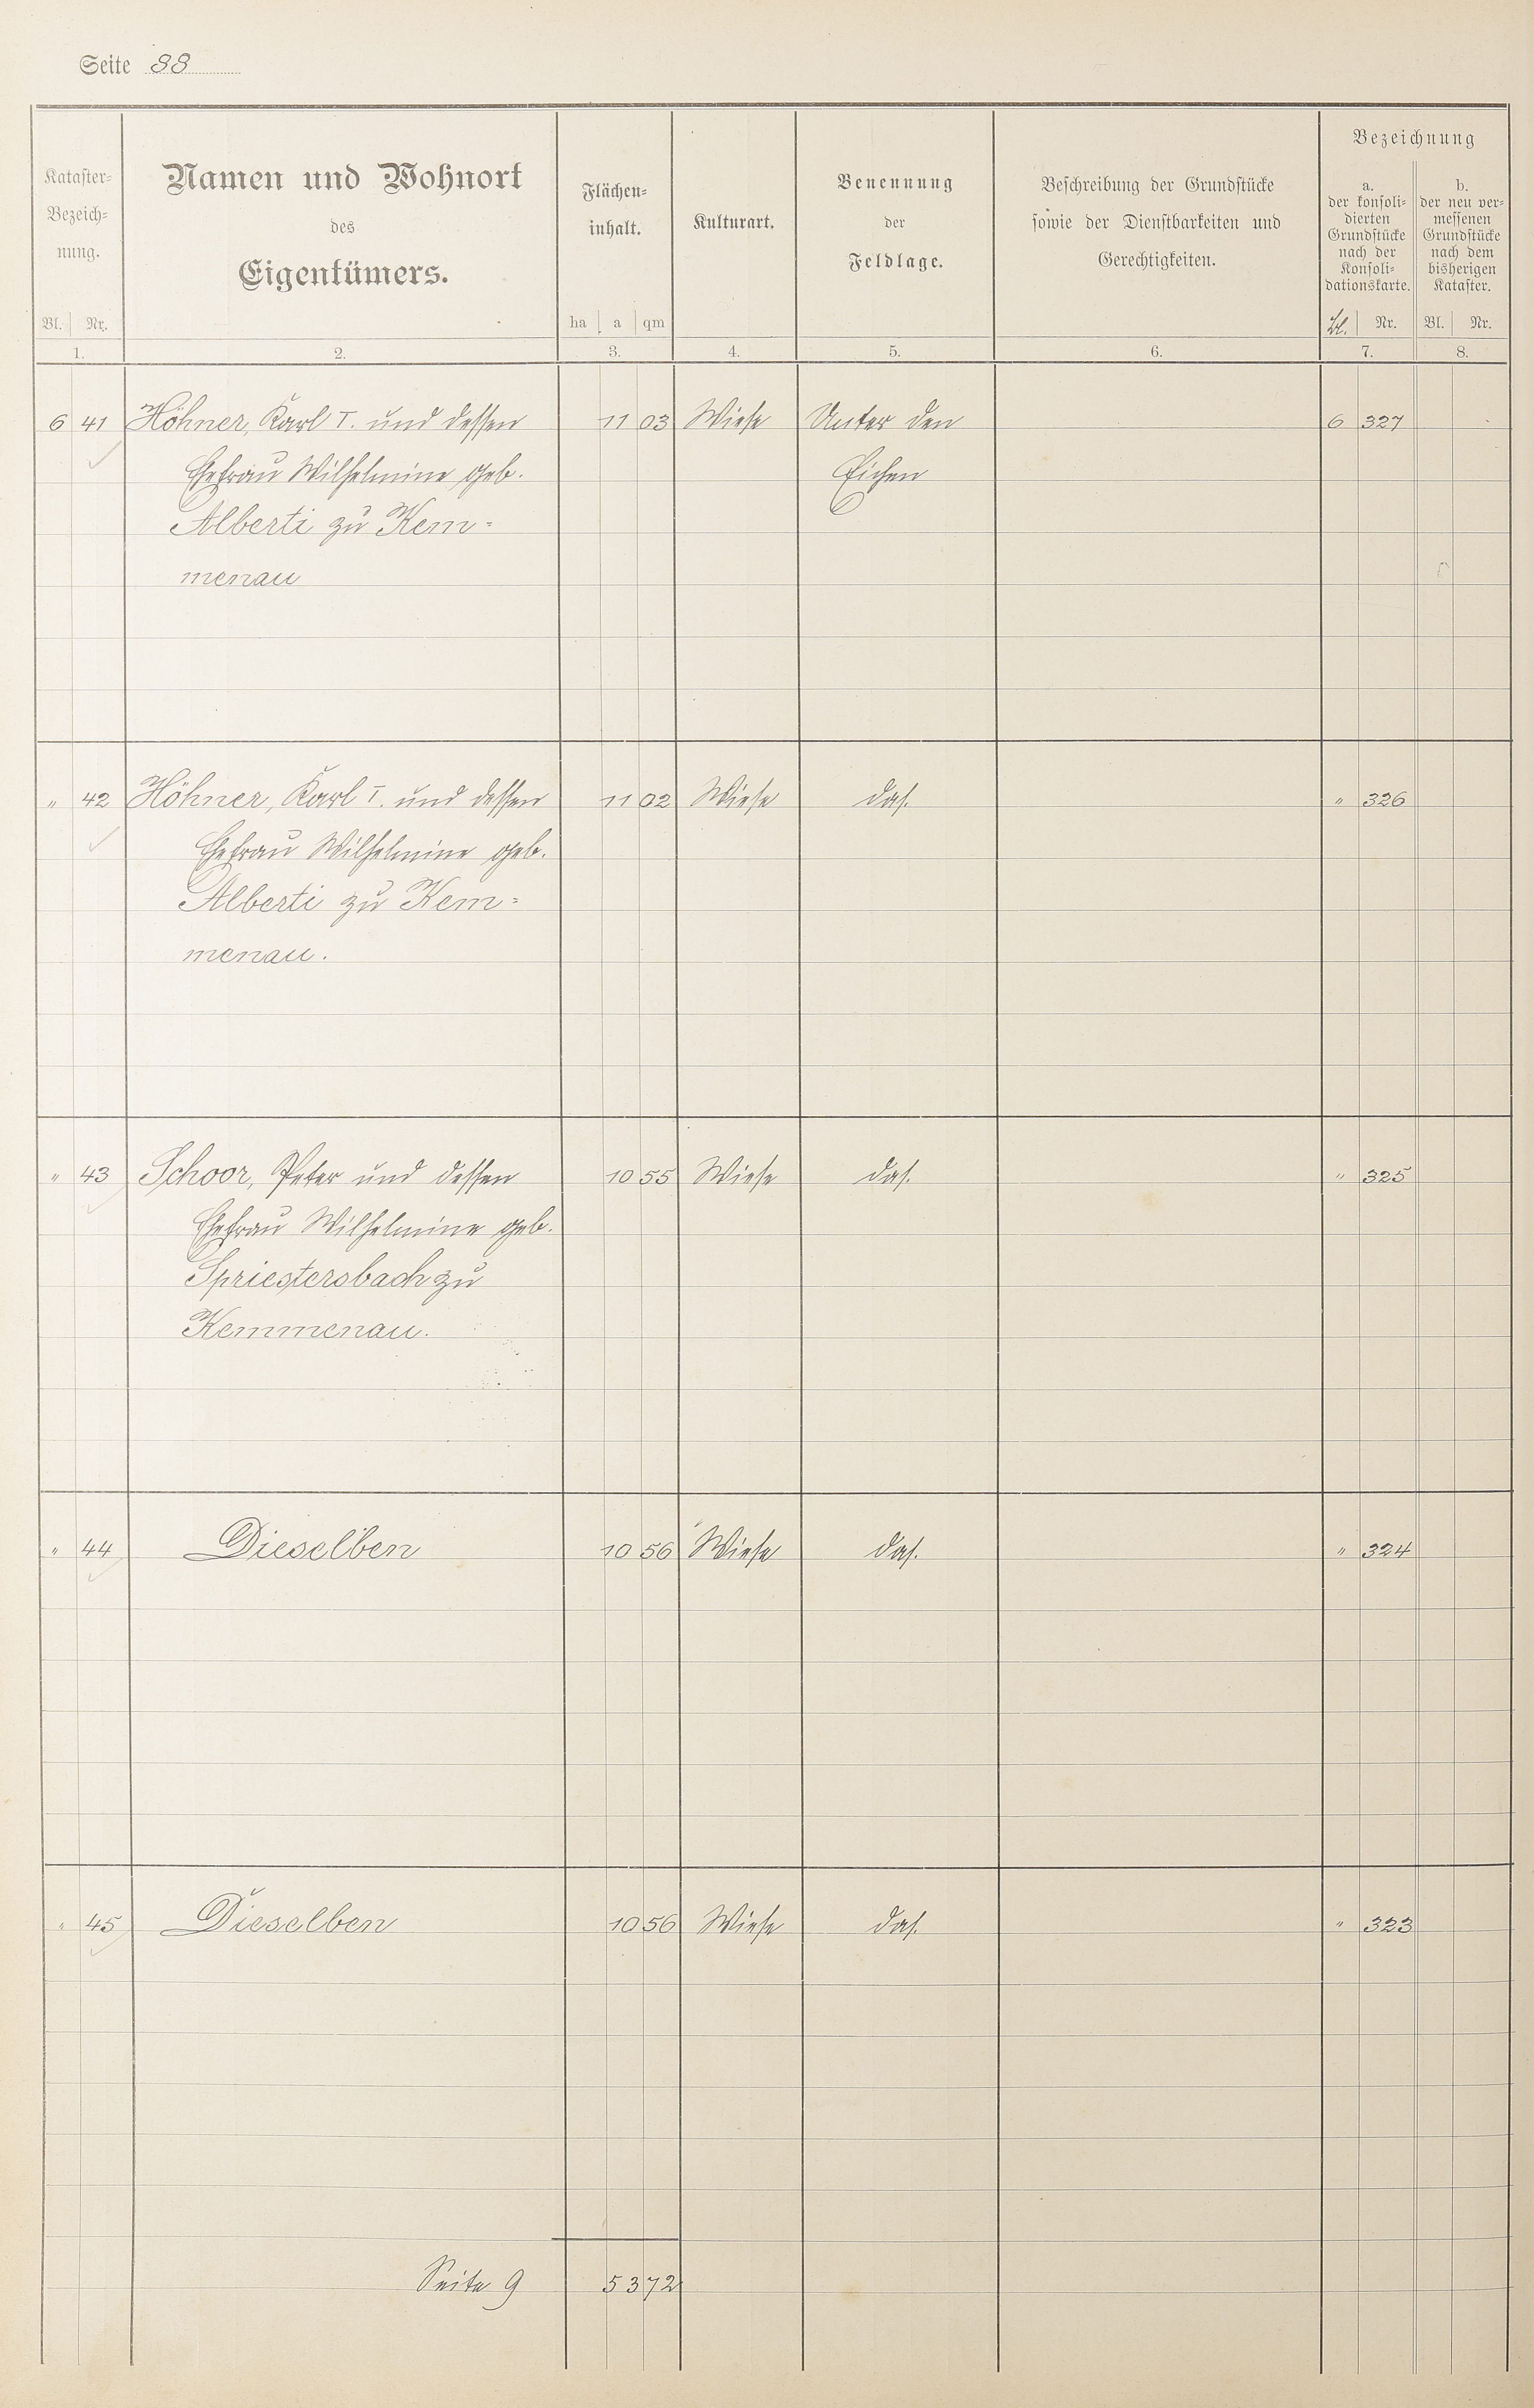 Seite 88
Kataster-
Bezeich-
nung.
Bl. Nr.
1.
Namen und Wohnort
des
Eigentümers.
2.
Flächen-
inhalt.
ha a qm
3.
Kulturart.
4.
Benennung
der
Feldlage.
5.
Beschreibung der Grundstücke
sowie der Dienstbarkeiten und
Gerechtigkeiten.
6.
Bezeichnung
a.
der konsoli-
dierten
Grundstücke
nach der
Konsoli-
dationskarte.
Bl. Nr.
7.
b.
der neu ver-
messenen
Grundstücke
nach dem
bisherigen
Kataster.
Bl. Nr.
8.
6 41 Höhner, Karl I. und dessen 11 03 Wiese Unter den 6 327
Ehefrau Wilhelmine geb. Eichen
Alberti zu Kem-
menau
" 42 Höhner, Karl I. und dessen 11 02 Wiese das. " 326
Ehefrau Wilhelmine geb.
Alberti zu Kem-
menau.
" 43 Schoor, Peter und dessen 10 55 Wiese das. " 325
Ehefrau Wilhelmine geb.
Spriestersbach zu
Kemmenau.
" 44 Dieselben 10 56 Wiese das. " 324
" 45 Dieselben 10 56 Wiese das. " 323
Seite 9 53 72